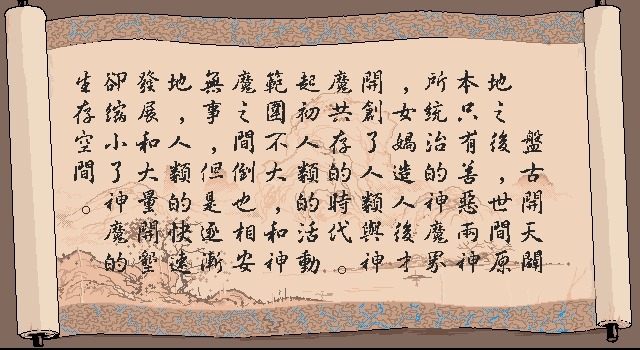 盤古開天闢
地之後，世間原
本只有善惡兩神
所統治的神魔界
，女媧造人後才
開創了人類與神
魔共存的時代。
起初人類的活動
範圍不大，和神
魔之間倒也相安
無事，但是逐漸
地，人類的快速
發展和大量開墾
卻縮小了神魔的
生存空間。